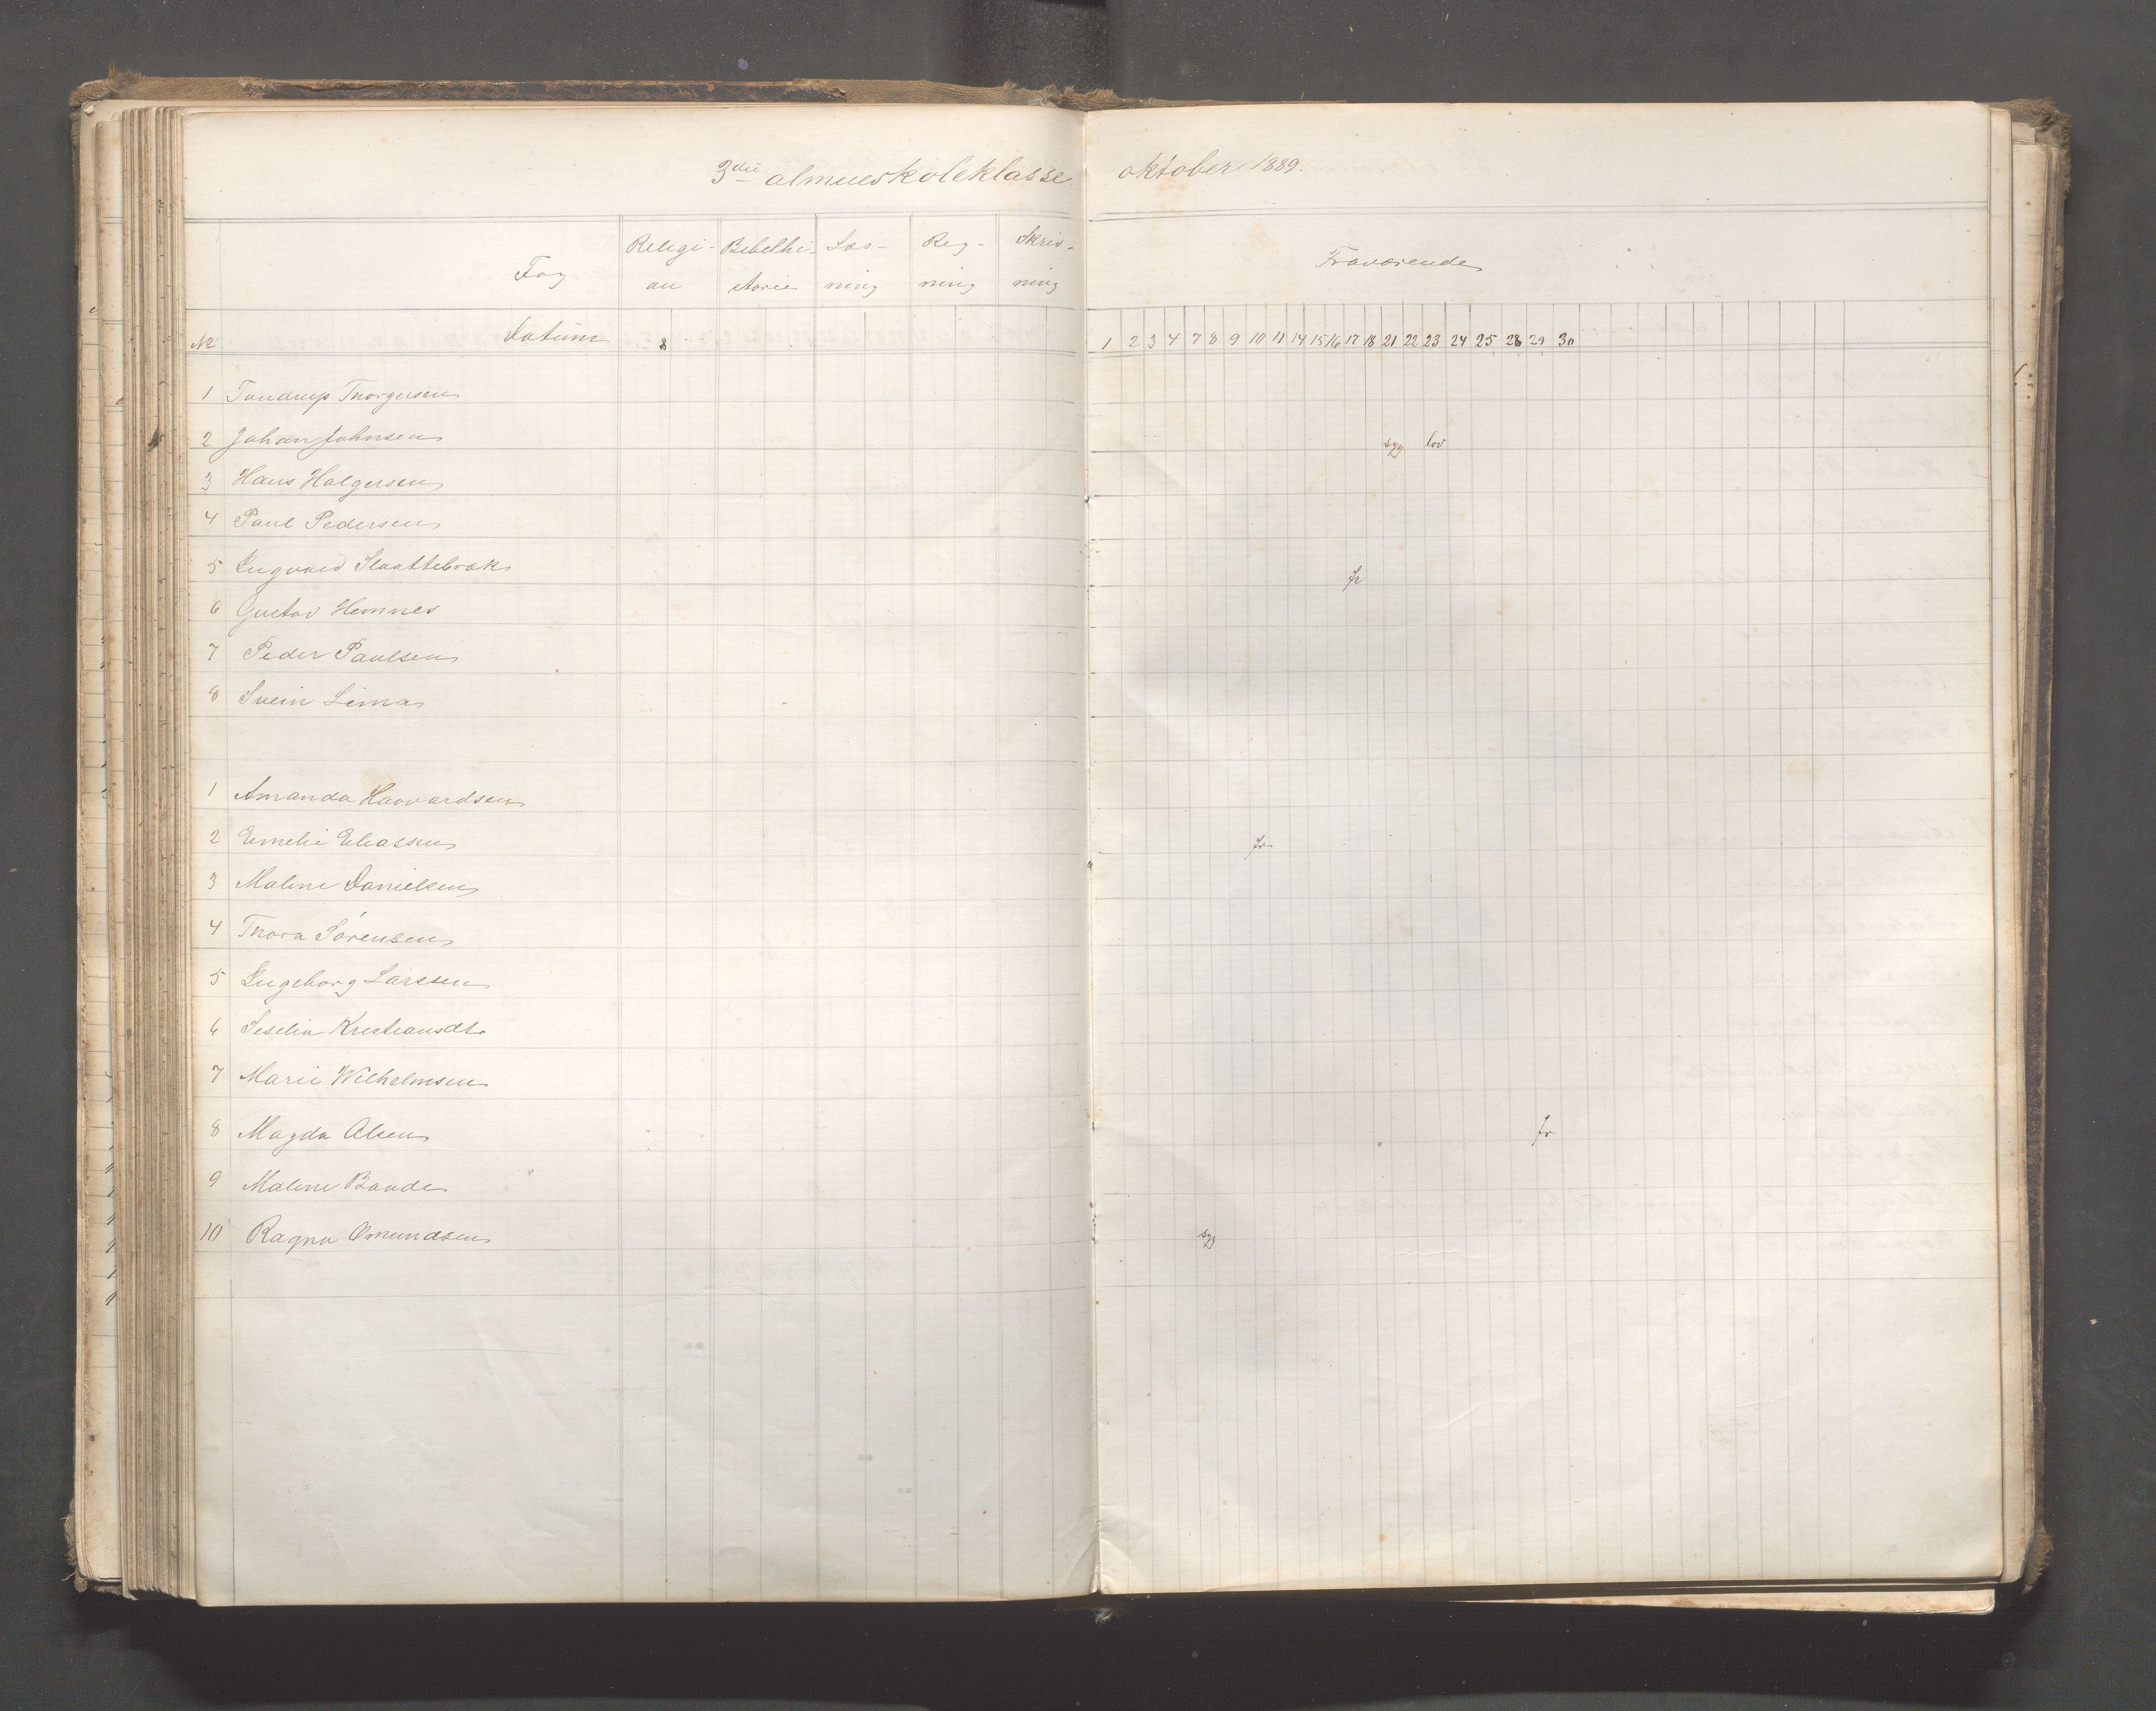 3die almueskoleklasse oktober 1889.
Fag Religi- on Bibelhi- storie Læs- ning Reg- ning Skriv- ning Fraværende
No Datum 8 1 2 3 4 7 8 9 10 11 14 15 16 17 18 21 22 23 24 25 28 29 30
1 Tandrup Thorgersen
2 Johan Johnsen syg lov
3 Hans Holgersen
4 Paul Pedersen
5 Ingvald Slaattebræk fr
6 Gustav Hemnes
7 Peder Paulsen
8 Svein Lima
1 Amanda Haavardsen
2 Emelie Eliassen fr
3 Maline Danielsen
4 Thora Sørensen
5 Ingeborg Larssen
6 Seselia Kristiansdtr
7 Marie Wilhelmsen
8 Magda Olsen fr
9 Maline Bande
10 Ragna Omundsen syg